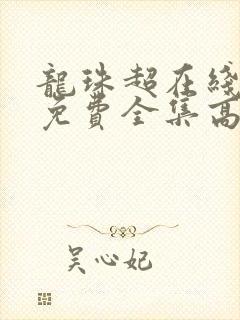 龍珠超在綫
免費全集高
吴心妃